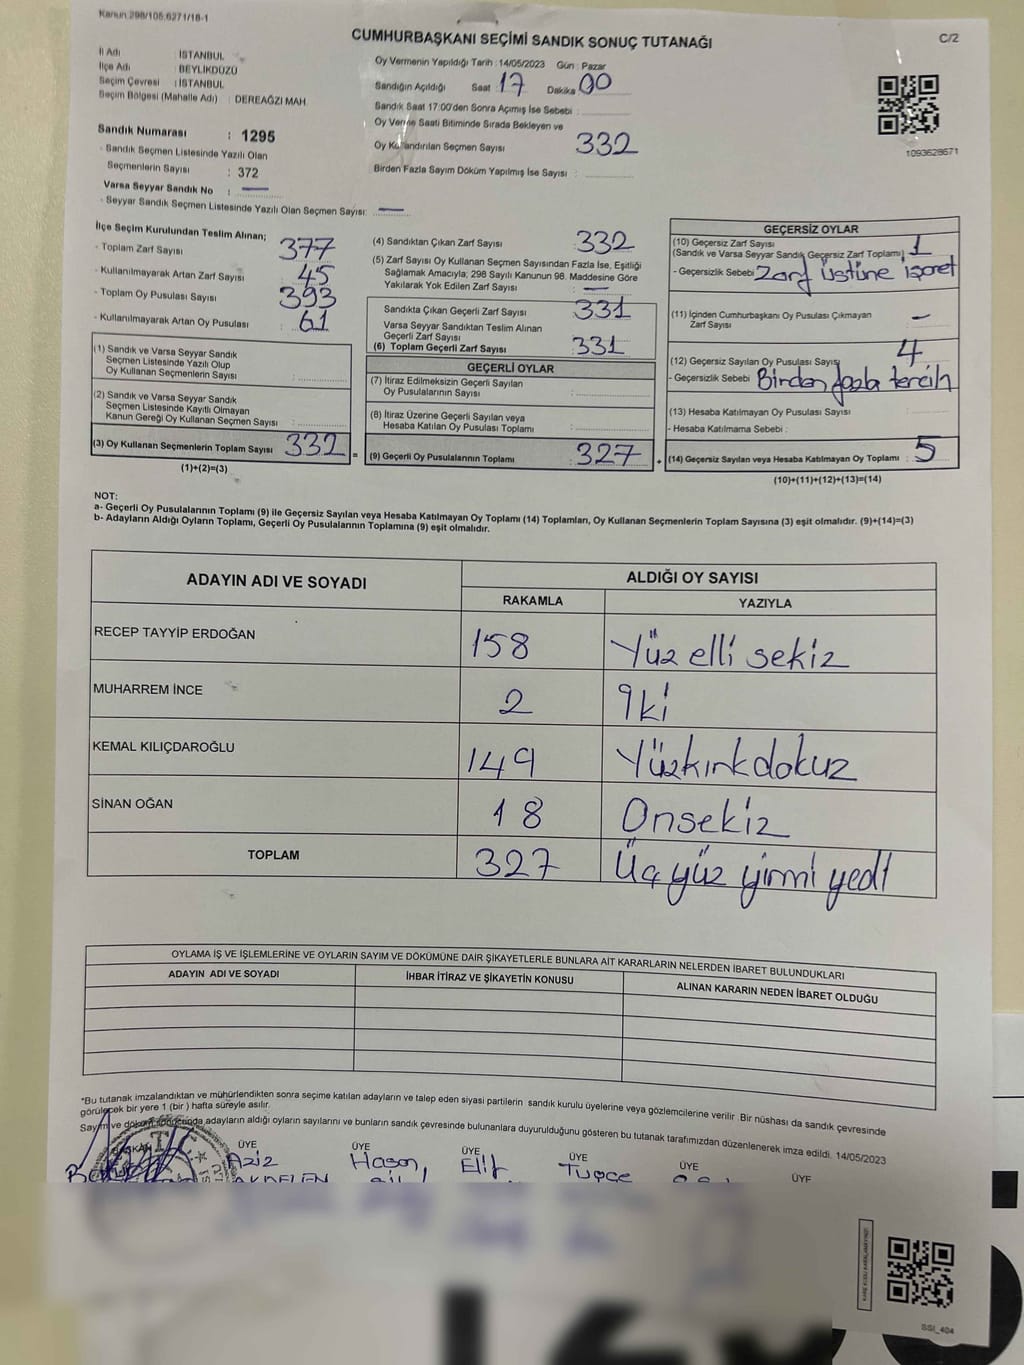 Kanun 298/105.6271/18-1
C/2
CUMHURBAŞKANI SEÇİMİ SANDIK SONUÇ TUTANAĞI
İl Adı : İSTANBUL
İlçe Adı : BEYLİKDÜZÜ
Seçim Çevresi : İSTANBUL
Seçim Bölgesi (Mahalle Adı) : DEREAĞZI MAH.
Sandık Numarası : 1295
- Sandık Seçmen Listesinde Yazılı Olan
Seçmenlerin Sayısı : 372
Varsa Seyyar Sandık No : —
- Seyyar Sandık Seçmen Listesinde Yazılı Olan Seçmen Sayısı: —
Oy Vermenin Yapıldığı Tarih : 14/05/2023 Gün : Pazar
Sandığın Açıldığı Saat 17 Dakika 00
Sandık Saat 17:00'den Sonra Açılmış İse Sebebi :
Oy Verme Saati Bitiminde Sırada Bekleyen ve
Oy Kullandırılan Seçmen Sayısı : 332
Birden Fazla Sayım Döküm Yapılmış İse Sayısı :
1093628671
İlçe Seçim Kurulundan Teslim Alınan;
- Toplam Zarf Sayısı : 377
- Kullanılmayarak Artan Zarf Sayısı : 45
- Toplam Oy Pusulası Sayısı : 393
- Kullanılmayarak Artan Oy Pusulası : 61
(1) Sandık ve Varsa Seyyar Sandık
Seçmen Listesinde Yazılı Olup
Oy Kullanan Seçmenlerin Sayısı :
(2) Sandık ve Varsa Seyyar Sandık
Seçmen Listesinde Kayıtlı Olmayan
Kanun Gereği Oy Kullanan Seçmen Sayısı :
(3) Oy Kullanan Seçmenlerin Toplam Sayısı : 332
(1)+(2)=(3)
=
(4) Sandıktan Çıkan Zarf Sayısı : 332
(5) Zarf Sayısı Oy Kullanan Seçmen Sayısından Fazla İse, Eşitliği
Sağlamak Amacıyla; 298 Sayılı Kanunun 98. Maddesine Göre
Yakılarak Yok Edilen Zarf Sayısı : —
Sandıkta Çıkan Geçerli Zarf Sayısı : 331
Varsa Seyyar Sandıktan Teslim Alınan
Geçerli Zarf Sayısı :
(6) Toplam Geçerli Zarf Sayısı : 331
GEÇERLİ OYLAR
(7) İtiraz Edilmeksizin Geçerli Sayılan
Oy Pusulalarının Sayısı :
(8) İtiraz Üzerine Geçerli Sayılan veya
Hesaba Katılan Oy Pusulası Toplamı :
(9) Geçerli Oy Pusulalarının Toplamı : 327
+
GEÇERSİZ OYLAR
(10) Geçersiz Zarf Sayısı
(Sandık ve Varsa Seyyar Sandık Geçersiz Zarf Toplamı) : 1
- Geçersizlik Sebebi : Zarf Üstüne işaret
(11) İçinden Cumhurbaşkanı Oy Pusulası Çıkmayan
Zarf Sayısı : —
(12) Geçersiz Sayılan Oy Pusulası Sayısı : 4
- Geçersizlik Sebebi : Birden fazla tercih
(13) Hesaba Katılmayan Oy Pusulası Sayısı :
- Hesaba Katılmama Sebebi :
(14) Geçersiz Sayılan veya Hesaba Katılmayan Oy Toplamı : 5
(10)+(11)+(12)+(13)=(14)
NOT:
a- Geçerli Oy Pusulalarının Toplamı (9) ile Geçersiz Sayılan veya Hesaba Katılmayan Oy Toplamı (14) Toplamları, Oy Kullanan Seçmenlerin Toplam Sayısına (3) eşit olmalıdır. (9)+(14)=(3)
b- Adayların Aldığı Oyların Toplamı, Geçerli Oy Pusulalarının Toplamına (9) eşit olmalıdır.
ADAYIN ADI VE SOYADI
ALDIĞI OY SAYISI
RAKAMLA YAZIYLA
RECEP TAYYİP ERDOĞAN 158 Yüz elli sekiz
MUHARREM İNCE 2 İki
KEMAL KILIÇDAROĞLU 149 Yüzkırkdokuz
SİNAN OĞAN 18 Onsekiz
TOPLAM 327 Üç yüz yirmi yedi
OYLAMA İŞ VE İŞLEMLERİNE VE OYLARIN SAYIM VE DÖKÜMÜNE DAİR ŞİKAYETLERLE BUNLARA AİT KARARLARIN NELERDEN İBARET BULUNDUKLARI
ADAYIN ADI VE SOYADI
İHBAR İTİRAZ VE ŞİKAYETİN KONUSU
ALINAN KARARIN NEDEN İBARET OLDUĞU
*Bu tutanak imzalandıktan ve mühürlendikten sonra seçime katılan adayların ve talep eden siyasi partilerin sandık kurulu üyelerine veya gözlemcilerine verilir. Bir nüshası da sandık çevresinde
görülecek bir yere 1 (bir ) hafta süreyle asılır.
Sayım ve döküm sonucunda adayların aldığı oyların sayılarını ve bunların sandık çevresinde bulunanlara duyurulduğunu gösteren bu tutanak tarafımızdan düzenlenerek imza edildi. 14/05/2023
BAŞKAN ÜYE ÜYE ÜYE ÜYE ÜYE ÜYE
Aziz Hasan Elif Tuğçe
SSİ_404